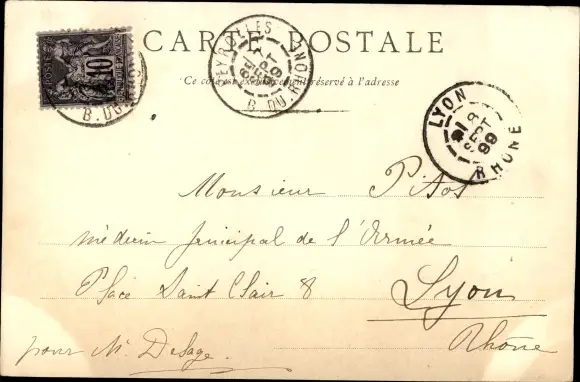 CARTE POSTALE
Ce côté est exclusivement réservé à l'adresse
POSTES
10
RÉPUBLIQUE FRANÇAISE
B. DU
PEYROLLES
SEPT
99
B. DU RHONE
LYON
8
SEPT
99
RHONE
Monsieur Pitot
médecin principal de l'Armée
Place Saint Clair 8 Lyon
Rhône
pour Mr. Desage.